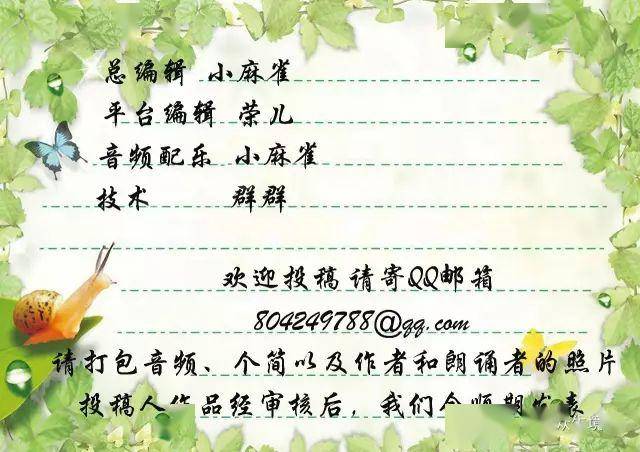 总编辑 小麻雀
平台编辑 荣儿
音频配乐 小麻雀
技术 群群
欢迎投稿 请寄QQ邮箱
804249788@qq.com
请打包音频、个简以及作者和朗诵者的照片
投稿人作品经审核后，我们会顺期发表